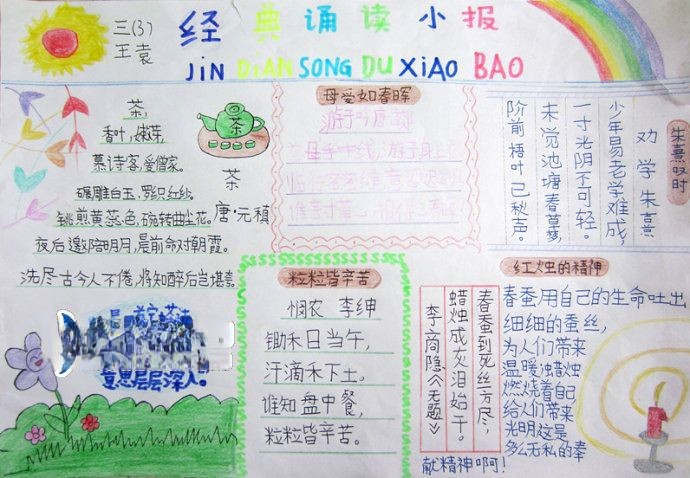 三(3)
王袁
经典诵读小报
JiN DiAN SONG DU XiAO BAO
茶,
香叶,嫩芽,
慕诗客,爱僧家。
碾雕白玉,罗织红纱。
铫煎黄蕊色,碗转曲尘花。
夜后邀陪明月,晨前命对朝霞。
洗尽古今人不倦,将知醉后岂堪夸。
茶
茶
唐·元稹
复思层层深入。
母爱如春晖
游子吟
母手中线,游子身上
朱熹叹时
劝学 朱熹
少年易老学难成,
一寸光阴不可轻。
未觉池塘春草梦,
阶前梧叶已秋声。
粒粒皆辛苦
悯农 李绅
锄禾日当午,
汗滴禾下土。
谁知盘中餐,
粒粒皆辛苦。
春蚕到死丝方尽,
蜡烛成灰泪始干。
李商隐《无题》
红烛的精神
春蚕用自己的生命吐出
细细的蚕丝,
为人们带来
温暖,蜡烛
燃烧着自己
给人们带来
光明这是
多么无私的奉
献精神啊!